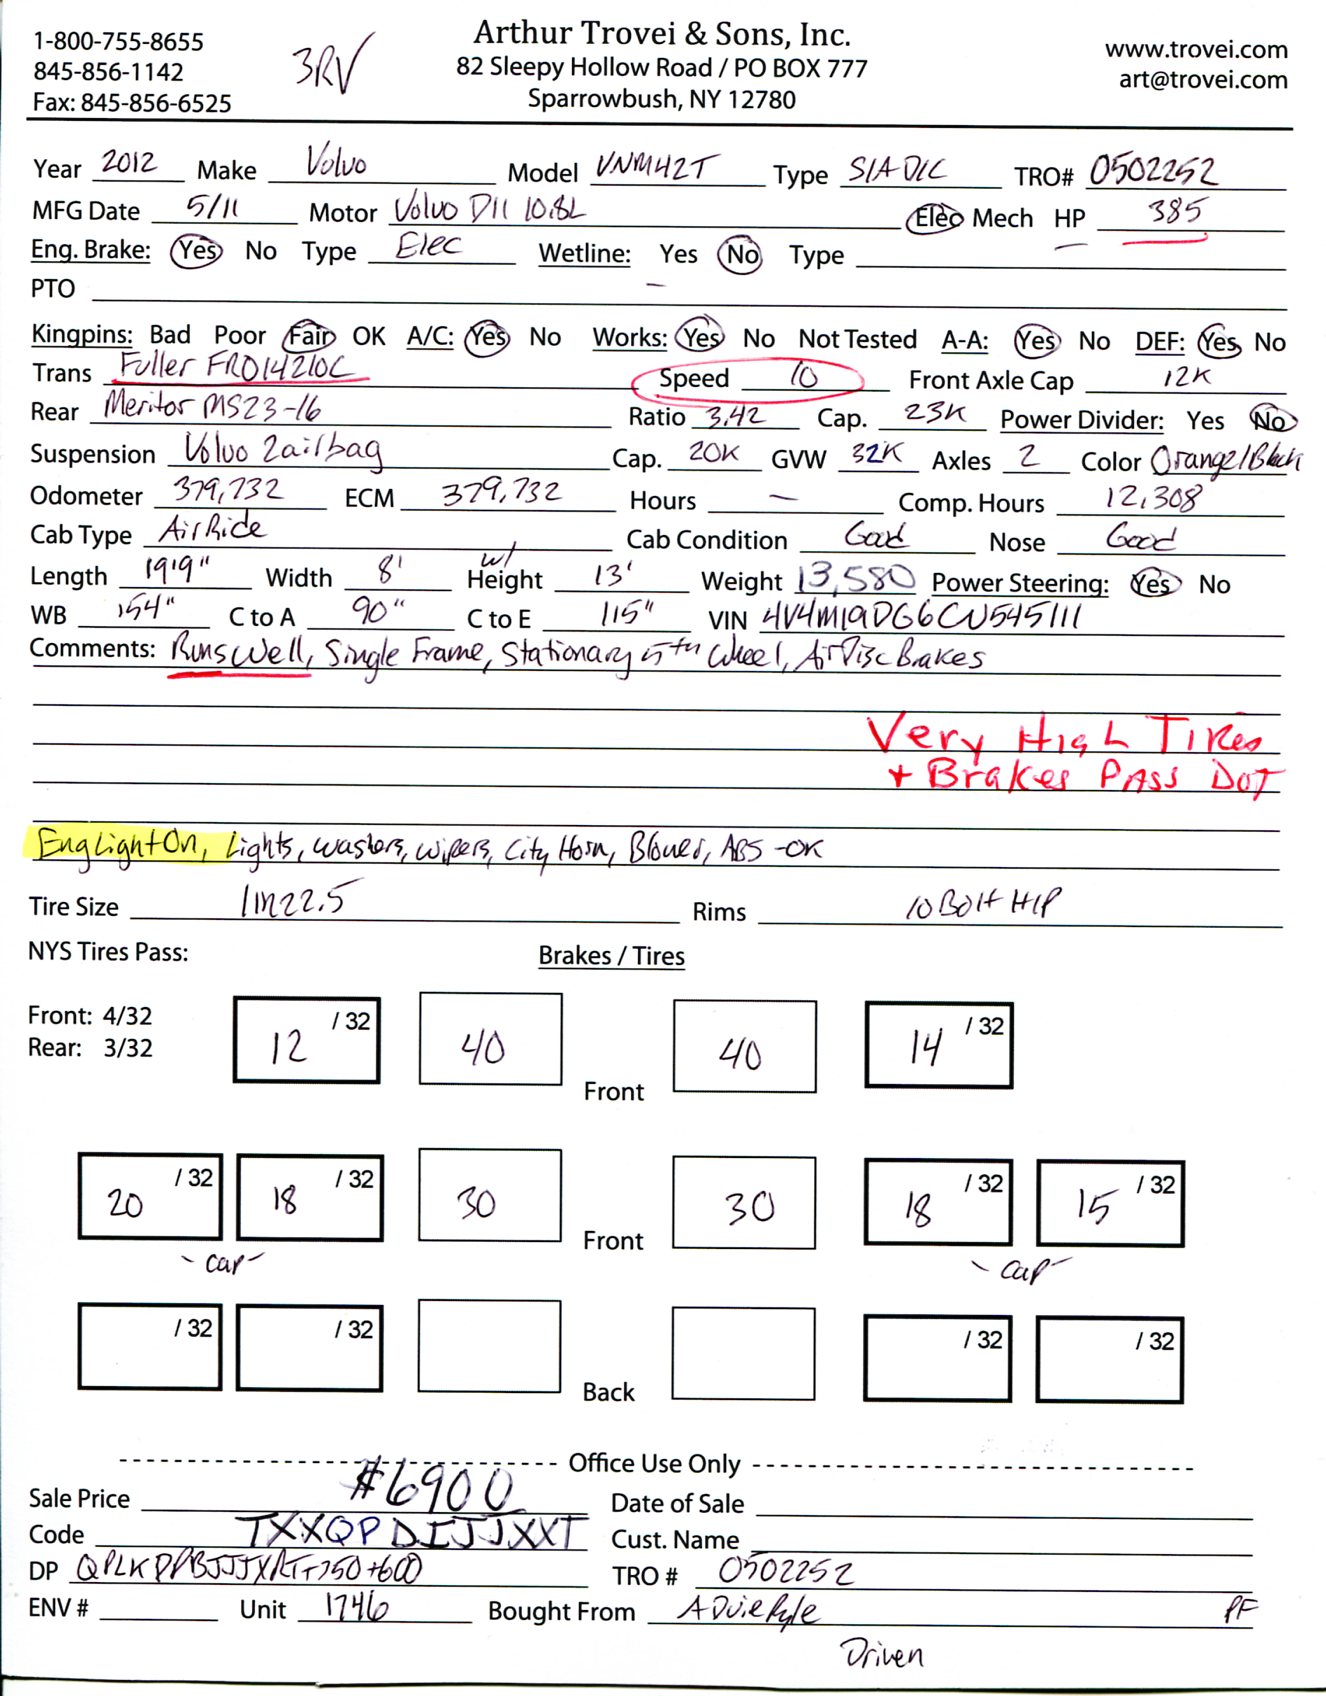 1-800-755-8655
845-856-1142
Fax: 845-856-6525
3RV
Arthur Trovei & Sons, Inc.
82 Sleepy Hollow Road / PO BOX 777
Sparrowbush, NY 12780
www.trovei.com
art@trovei.com
Year 2012 Make Volvo Model VNM42T Type S/A D/C TRO# 0502252
MFG Date 5/11 Motor Volvo D11 10.8L Elec Mech HP 385
Eng. Brake: Yes No Type Elec Wetline: Yes No Type
PTO
Kingpins: Bad Poor Fair OK A/C: Yes No Works: Yes No Not Tested A-A: Yes No DEF: Yes No
Trans Fuller FRO14210C Speed 10 Front Axle Cap 12K
Rear Meritor MS23-16 Ratio 3.42 Cap. 23K Power Divider: Yes No
Suspension Volvo 2airbag Cap. 20K GVW 32K Axles 2 Color Orange/Black
Odometer 379,732 ECM 379,732 Hours — Comp. Hours 12,308
Cab Type Air Ride Cab Condition Good Nose Good
Length 19'9" Width 8' w/ Height 13' Weight 13,580 Power Steering: Yes No
WB 154" C to A 90" C to E 115" VIN 4V4M19DG6CN545111
Comments: Runs Well, Single Frame, Stationary 5th Wheel, Air Disc Brakes
Very High Tires
+ Brakes PASS DOT
Eng Light On, Lights, Washers, Wipers, City Horn, Blower, ABS -OK
Tire Size 11R22.5 Rims 10 Bolt H/P
NYS Tires Pass: Brakes / Tires
Front: 4/32
Rear: 3/32
12 /32 40 Front 40 14 /32
20 /32 18 /32 30 Front 30 18 /32 15 /32
- cap - - cap -
/32 /32 Back /32 /32
Office Use Only
Sale Price #6900 Date of Sale
Code TXXQPDIJJXXT Cust. Name
DP TRO # 0502252
ENV # Unit 1746 Bought From PF
Driven